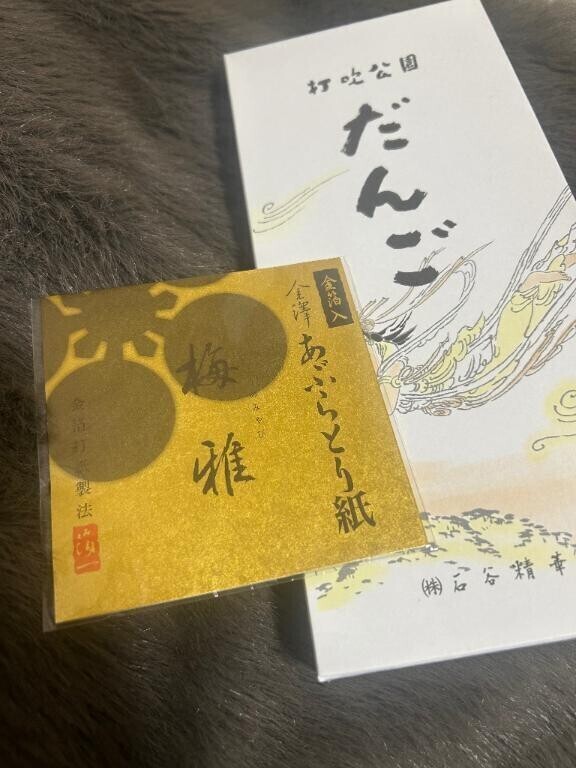 打吹公園
だんご
㈱石谷精華
金箔入
金澤
あぶらとり紙
梅
雅
みやび
金箔打紙製法
箔一